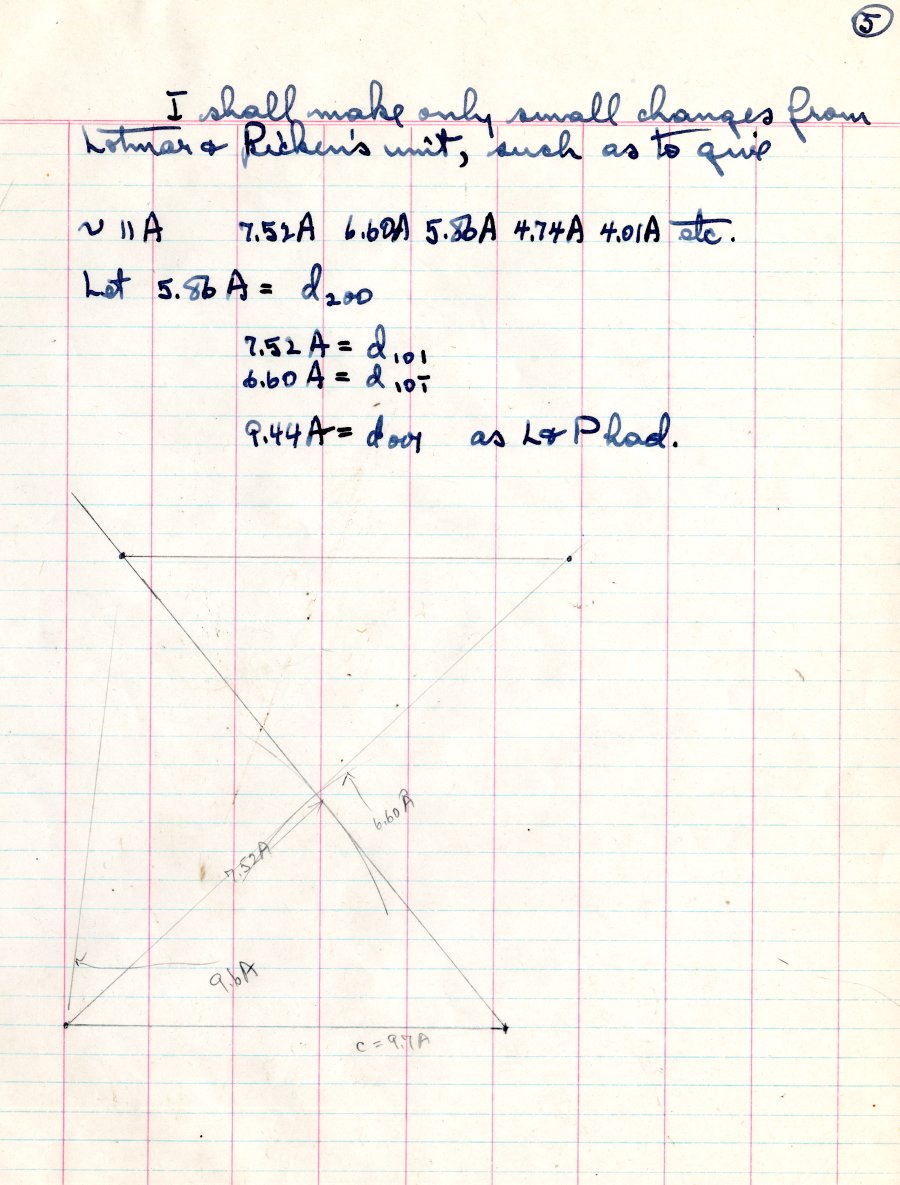 5
I shall make only small changes from
Lotmar & Picken's unit, such as to give
~ 11 A 7.52A 6.60A 5.86A 4.74A 4.01A etc.
Let 5.86 A = d₂₀₀
7.52 A = d₁₀₁
6.60 A = d₁₀₁̄
9.44 A = d₀₀₁ as L & P had.
6.60 A
7.52A
9.6A
c = 9.7A